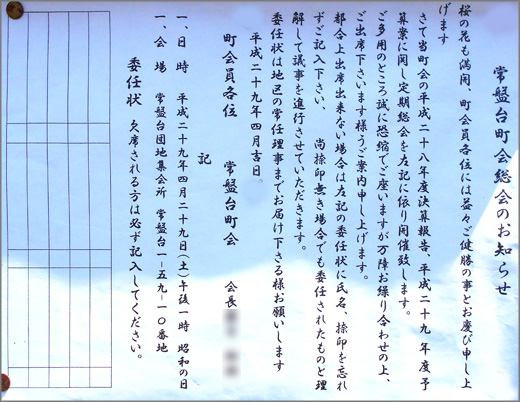 常盤台町会総会のお知らせ
桜の花も満開、町会員各位には益々ご健勝の事とお慶び申し上
げます
さて当町会の平成二十八年度決算報告、平成二十九年度予
算案に関し定期総会を左記に依り開催致します。
ご多用のところ誠に恐縮でご座いますが万障お繰り合わせの上、
ご出席下さいます様うご案内申し上げます。
都合上出席出来ない場合は左記の委任状に氏名、捺印を忘れ
ずご記入下さい、 尚捺印無き場合でも委任されたものと理
解して議事を進行させていただきます。
委任状は地区の常任理事までお届け下さる様お願いします
平成二十九年四月吉日。
町会員各位 常盤台町会 会長
記
一、日 時 平成二十九年四月二十九日(土)午後一時 昭和の日
一、会 場 常盤台団地集会所 常盤台一-五九-一〇番地
委任状 欠席される方は必ず記入してください。